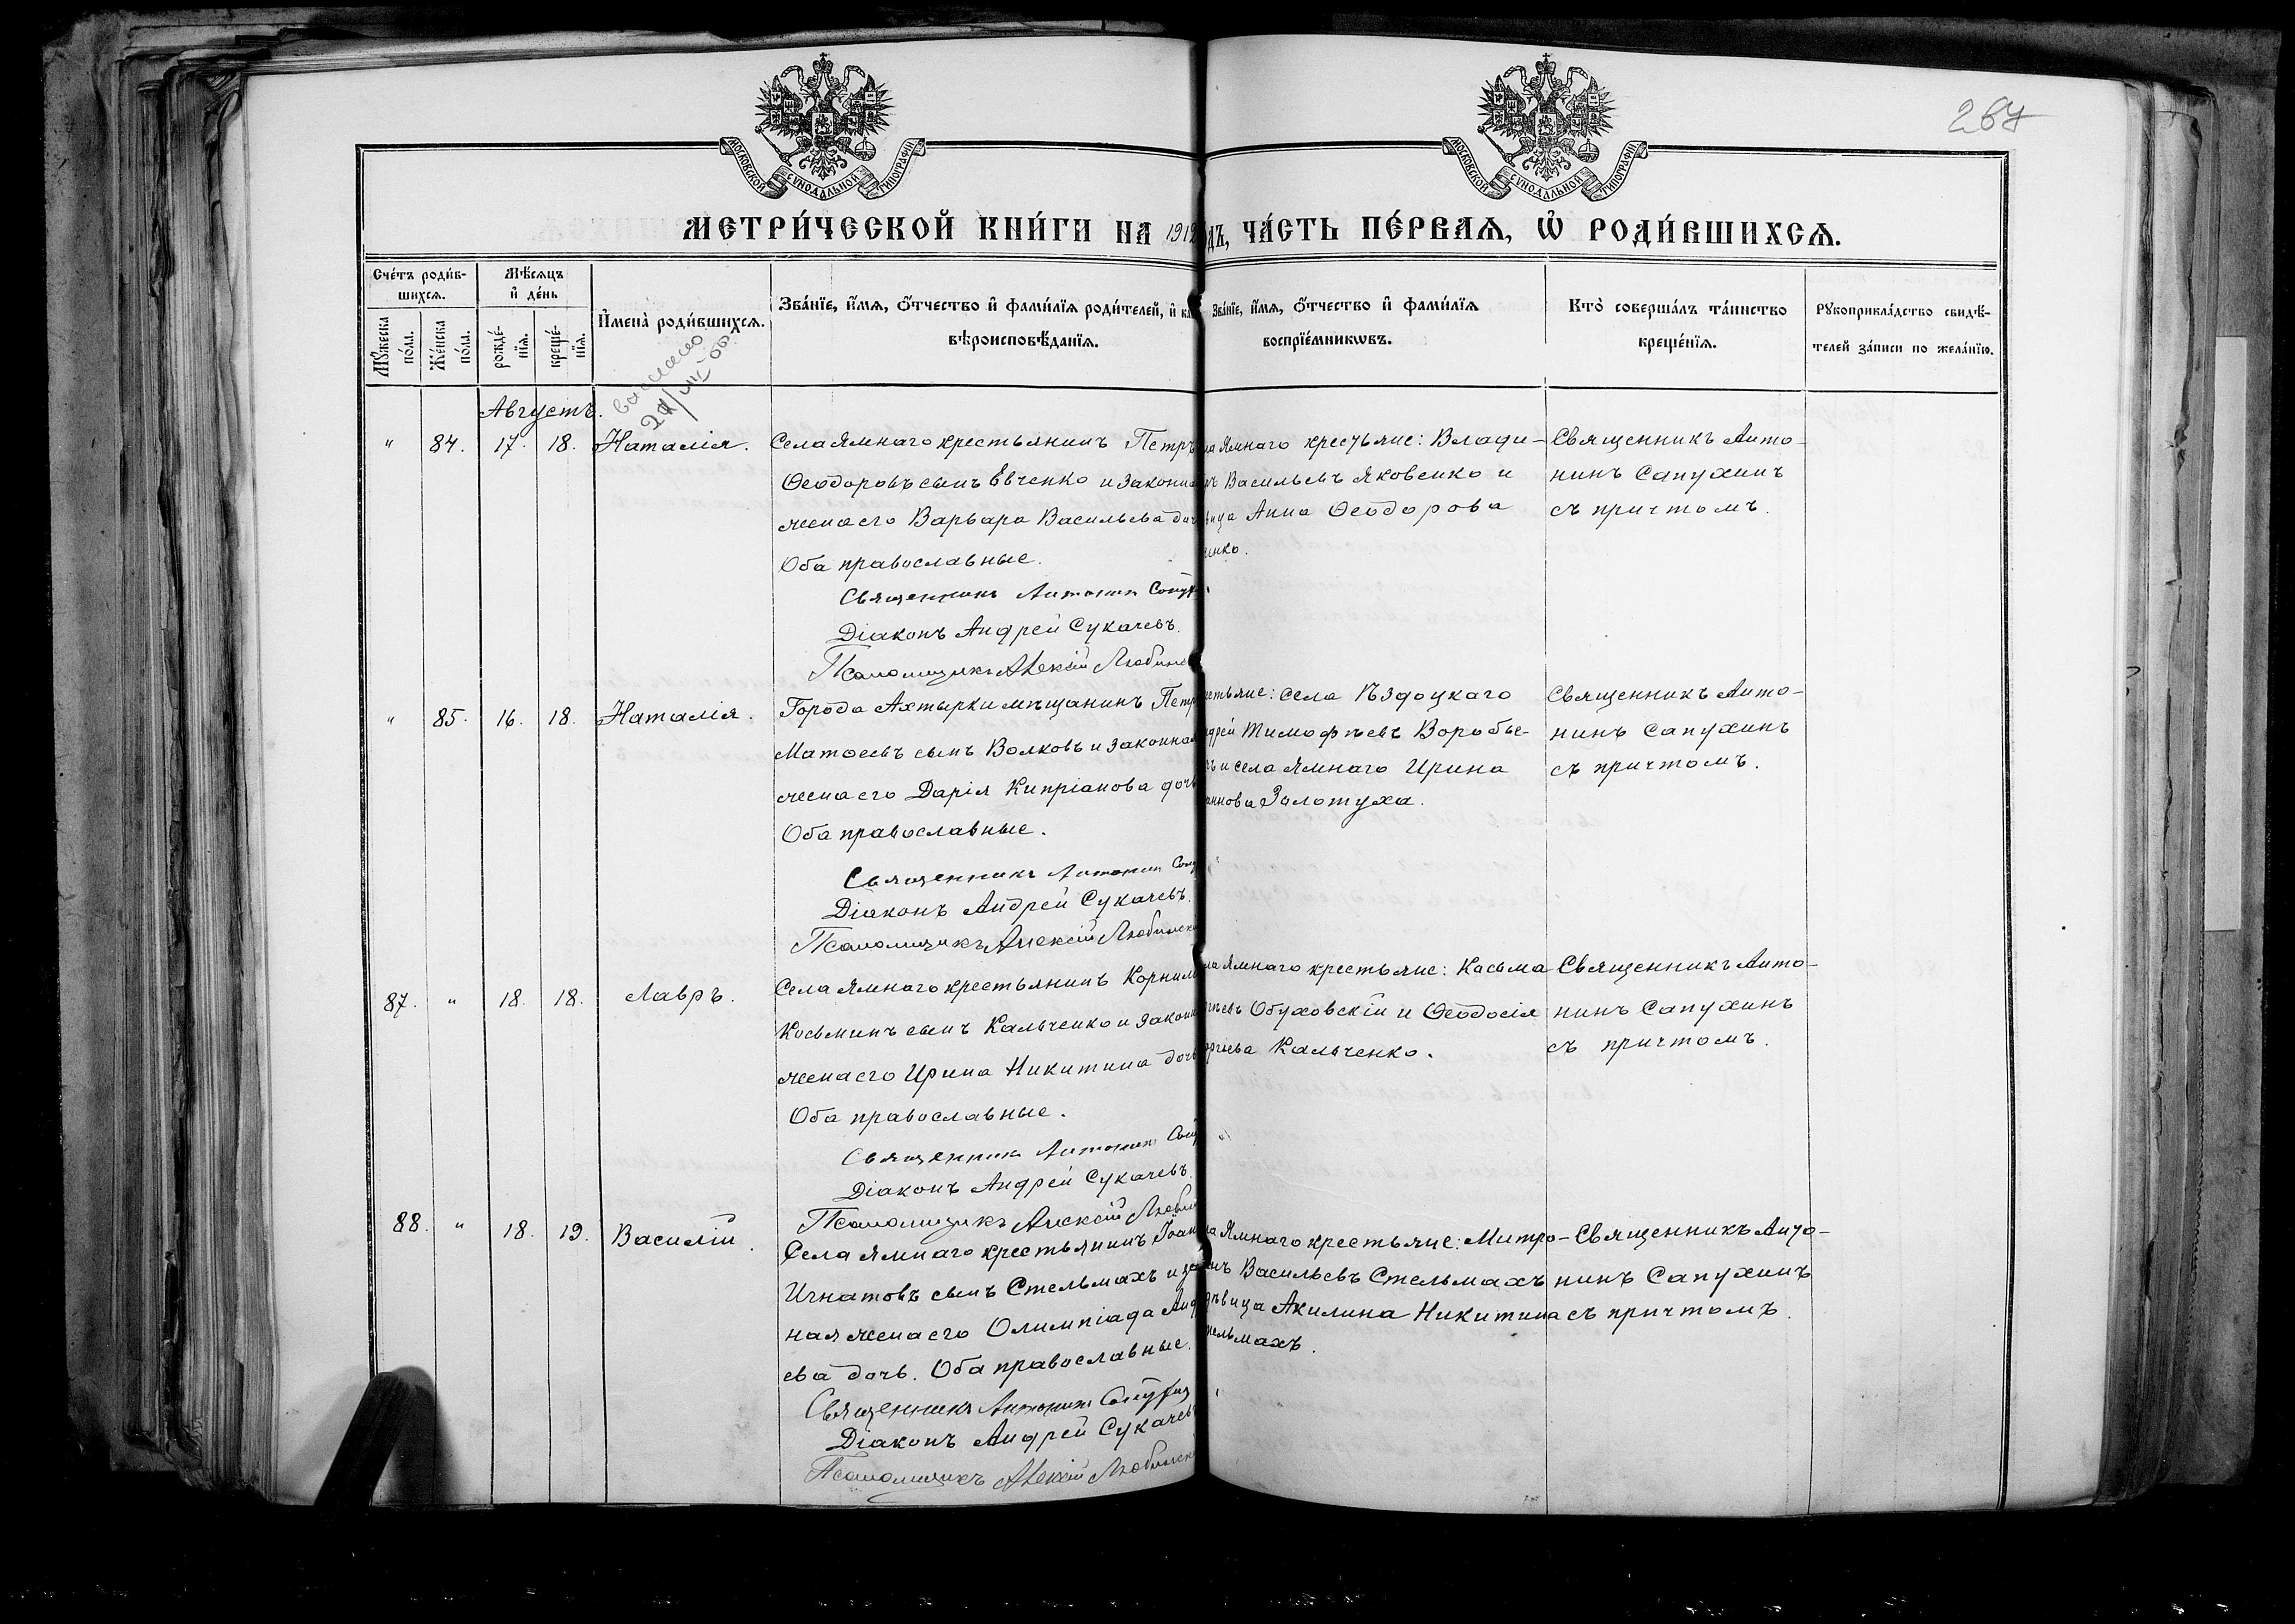 267
МОСКОВСКОЙ СУНОДАЛЬНОЙ ТИПОГРАФІИ
МОСКОВСКОЙ СУНОДАЛЬНОЙ ТИПОГРАФІИ
МЕТРИ́ЧЕСКОЙ КНИ́ГИ НА 191 ДЪ, ЧА́СТЬ ПЕ́РВАЯ, Ѡ҆ РОДИ́ВШИХСЯ.
Сче́тъ роди́в-
шихся.
Мѣ́сяцъ
и҆ де́нь
Мꙋ́жеска
по́ла.
Же́нска
по́ла.
рожде́-
нїя.
креще́-
нїя.
И҆мена̀ роди́вшихся.
Зва́нїе, и҆́мя, ѻ҆́тчество и҆ фами́лїя роди́телей, и҆ к
вѣроисповѣ́данїя.
Зва́нїе, и҆́мя, ѻ҆́тчество и҆ фами́лїя
воспрїе́мникѡвъ.
Кто̀ соверша́лъ та́инство
креще́нїя.
Рꙋкоприкла́дство свидѣ́-
телей за́писи по жела́нїю.
Августъ.
" 84. 17. 18. Наталія.
Села Ямнаго крестьянинъ Петръ
Ѳеодоровъ сынъ Евченко и законна
жена его Варвара Васильева доч
Оба православные.
Священникъ Антонинъ Сапух
Діаконъ Андрей Сукачевъ.
Псаломщикъ Алексій Любинс
ла Ямнаго крестьяне: Влади-
ръ Васильевъ Яковенко и
вица Анна Ѳеодорова
енко.
Священникъ Анто-
нинъ Сапухинъ
съ причтомъ.
" 85. 16. 18. Наталія.
Города Ахтырки мѣщанинъ Петр
Матѳеевъ сынъ Волковъ и законна
жена его Дарія Кипріанова дочь
Оба православные.
Священникъ Антонинъ Сапу
Діаконъ Андрей Сукачевъ.
Псаломщикъ Алексій Любинск
естьяне: села Пѣздоцкаго
ндрей Тимофѣевъ Воробье-
ъ и села Ямнаго Ирина
аннова Золотуха.
Священникъ Анто-
нинъ Сапухинъ
съ причтомъ.
87. " 18. 18. Лавръ.
Села Ямнаго крестьянинъ Корнил
Косьминъ сынъ Кальченко и законн
жена его Ирина Никитина дочь
Оба православные.
Священникъ Антонинъ Сапу
Діаконъ Андрей Сукачевъ.
Псаломщикъ Алексій Любин
ла Ямнаго крестьяне: Касьма
ѣевъ Обуховскій и Ѳеодосія
оргіева Кальченко.
Священникъ Анто-
нинъ Сапухинъ
съ причтомъ.
88. " 18. 19. Василій.
Села Ямнаго крестьянинъ Іоан
Игнатовъ сынъ Стельмахъ и за
ная жена его Олимпіада Анд
ева дочь. Оба православные.
Священникъ Антонинъ Сапухин
Діаконъ Андрей Сукачев
Псаломщикъ Алексій Любинск
ла Ямнаго крестьяне: Митро-
нъ Васильевъ Стельмахъ
дѣвица Акилина Никитина
тельмахъ.
Священникъ Анто-
нинъ Сапухинъ
съ причтомъ.